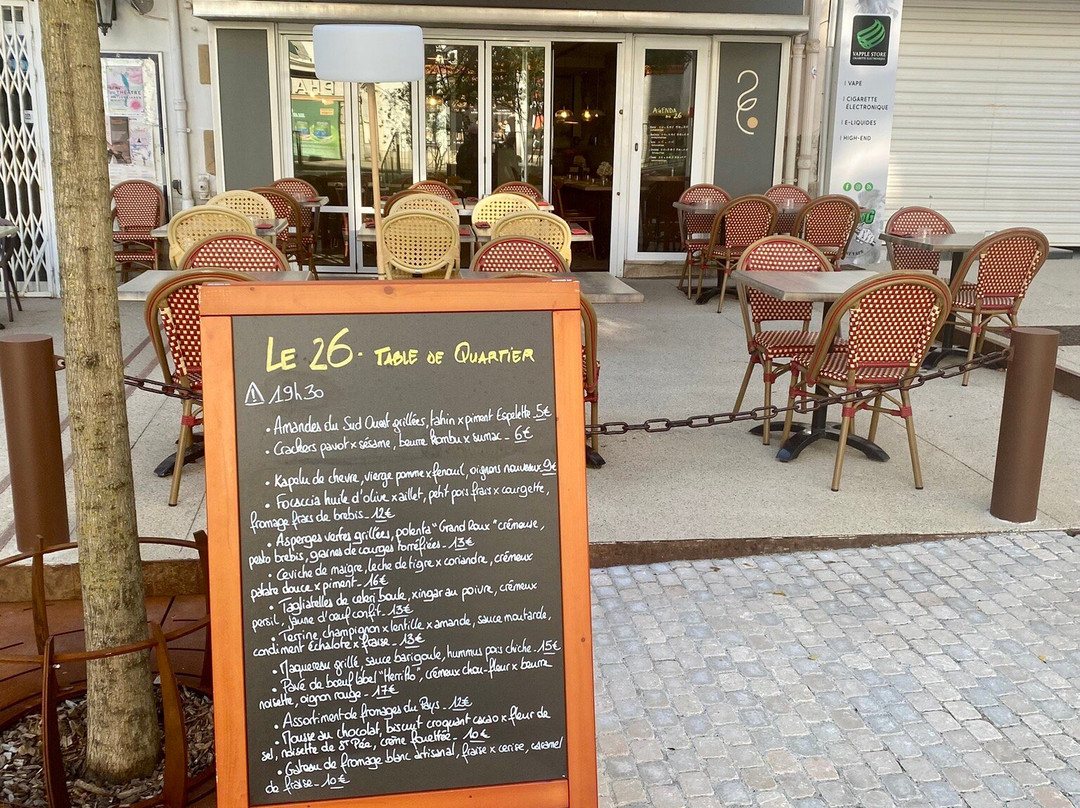 VAPPLE STORE
CIGARETTE ÉLECTRONIQUE
| VAPE
| CIGARETTE
ÉLECTRONIQUE
| E-LIQUIDES
| HIGH-END
PHA
AGENDA
DU 26
26
LE 26 · TABLE DE QUARTIER
⚠ 19h30
• Amandes du Sud Ouest grillées, tahin x piment Espelette_5€
• Crackers pavot x sésame, beurre Kombu x sumac_ 6€
• Kapelu de chevre, vierge pomme x fenouil, oignons nouveaux_9€
• Focaccia huile d'olive x aillet, petit pois frais x courgette,
fromage frais de brebis_ 12€
• Asperges vertes grillées, polenta "Grand Roux" crémeuse,
pesto brebis, graines de courges torréfiées_ 13€
• Ceviche de maigre, leche de tigre x coriandre, crémeux
patate douce x piment_ 16€
• Tagliatelles de céleri boule, xingar au poivre, crémeux
persil, jaune d'œuf confit_ 13€
• Terrine champignon x lentille x amande, sauce moutarde,
condiment échalote x fraise_ 13€
• Maquereau grillé, sauce barigoule, hummus pois chiche_15€
• Pavé de bœuf label "Herriko", crémeux chou-fleur x beurre
noisette, oignon rouge_ 17€
• Assortiment de fromages du Pays_ 12€
• Mousse au chocolat, biscuit croquant cacao x fleur de
sel, noisette de St Pée, crème fouettée_ 10€
• Gateau de fromage blanc artisanal, fraise x cerise, caramel
de fraise_ 10€